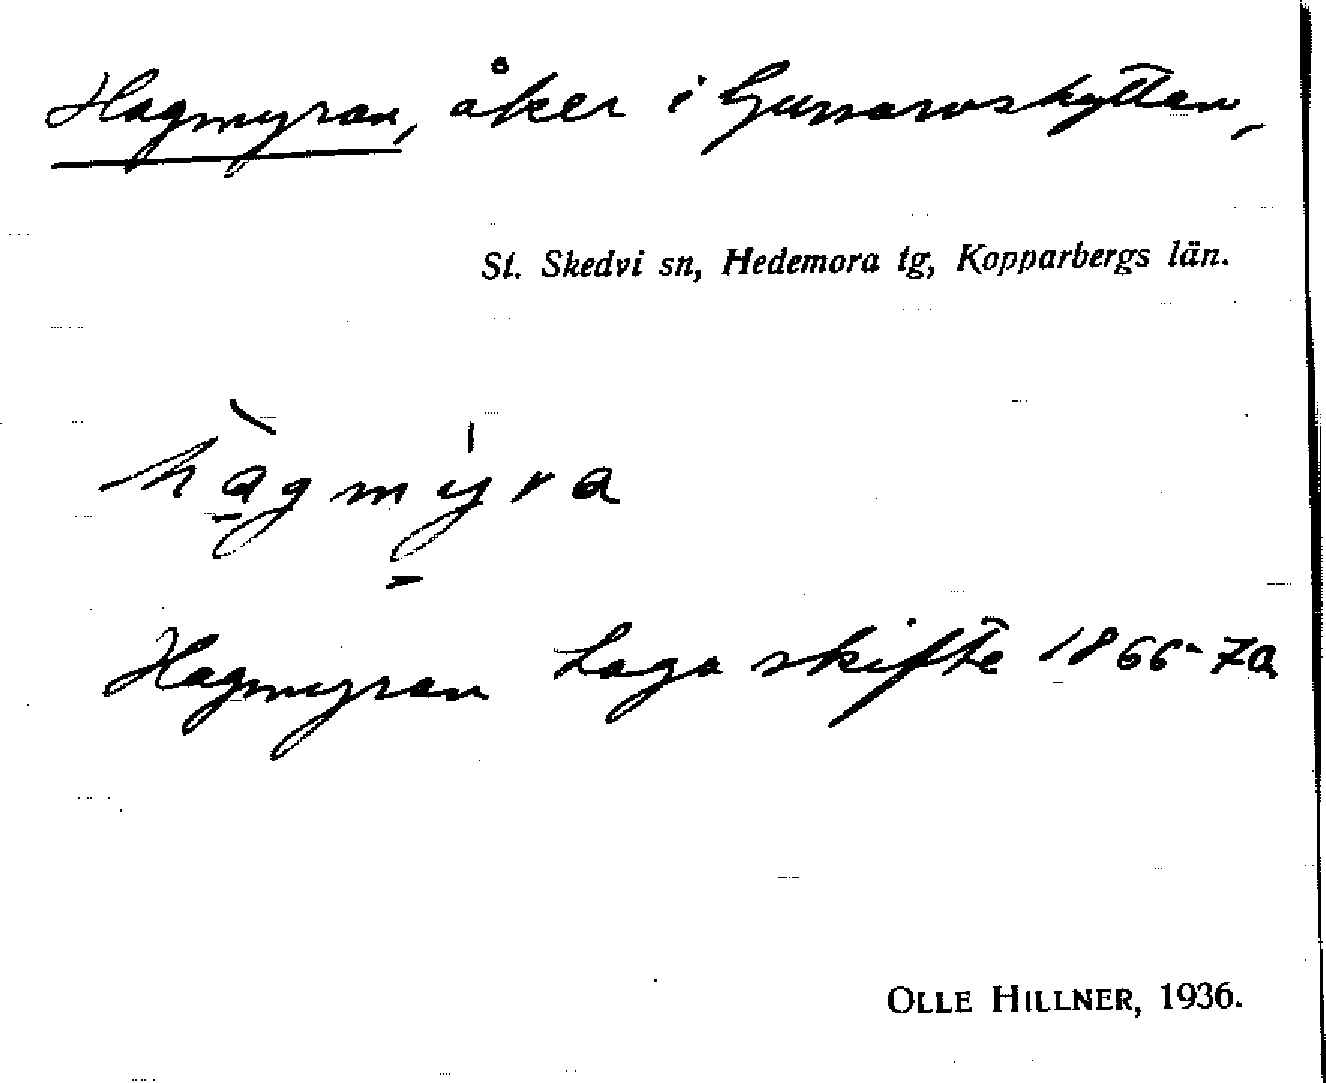 Hagmyran, åker i Gunnarvskyttan,
St. Skedvi sn, Hedemora tg, Kopparbergs län.
hàgmy̍ra
Hagmyran Laga skifte 1866-70
OLLE HILLNER, 1936.